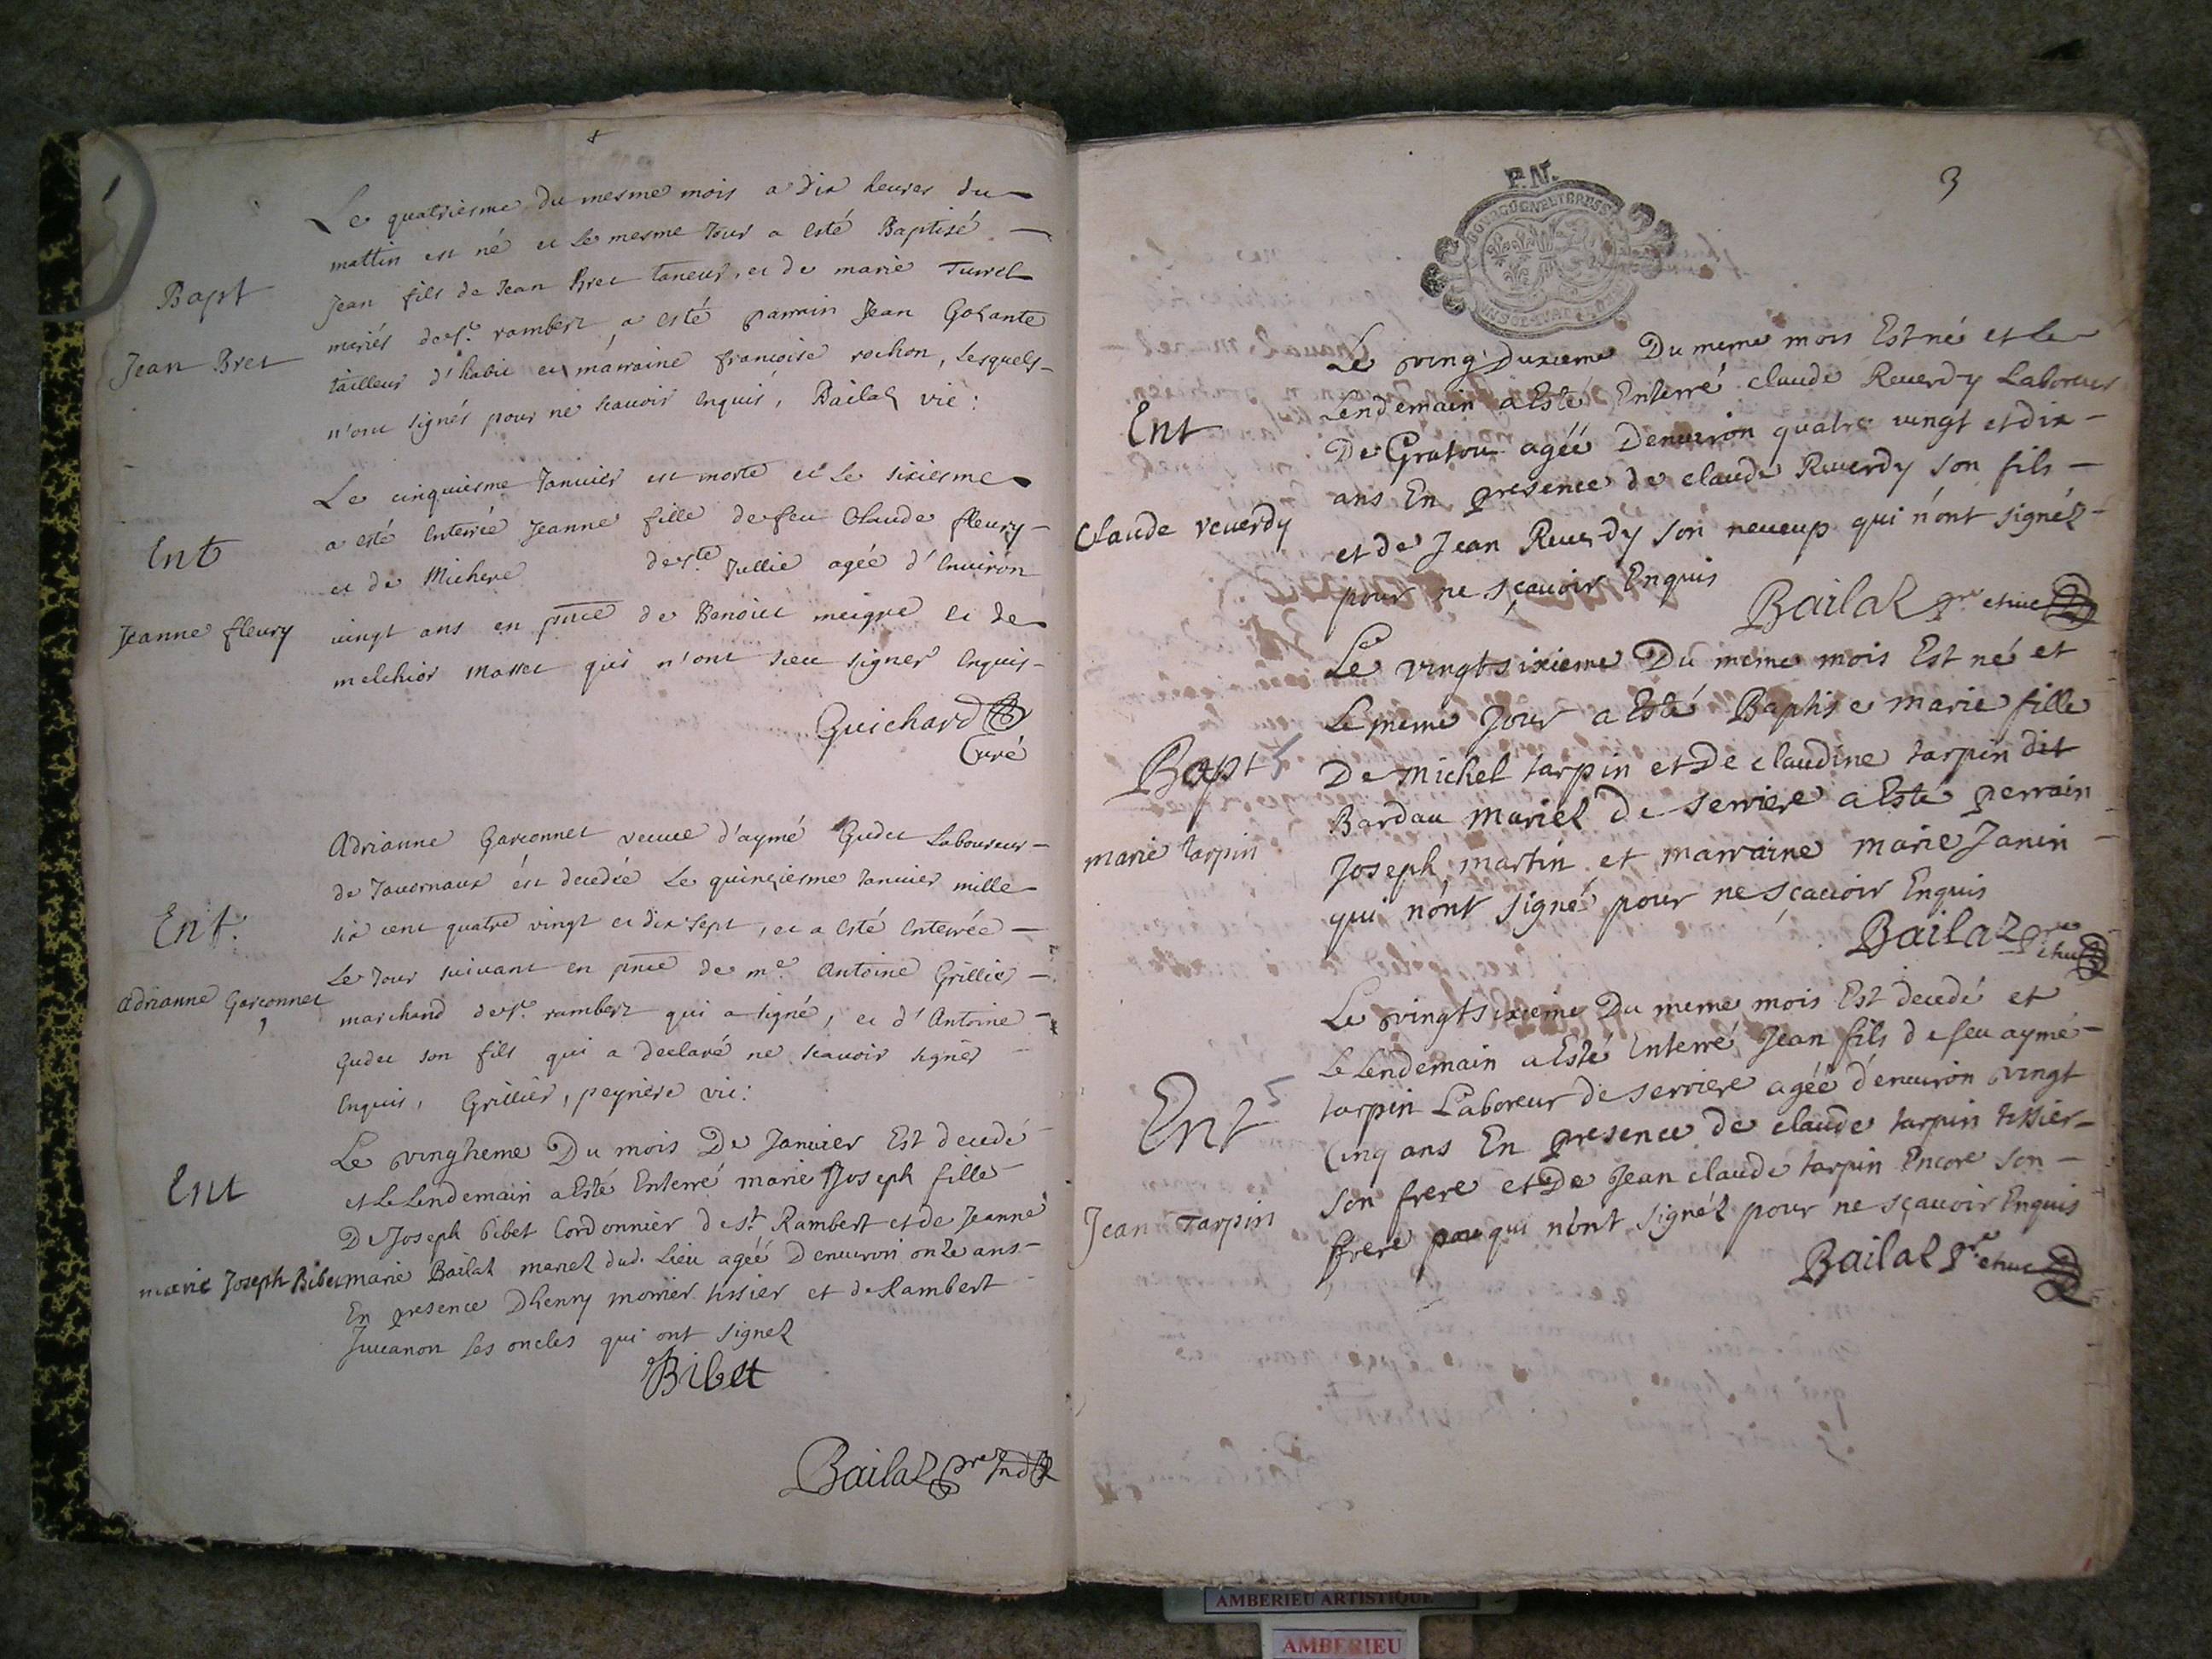 Bapt
Jean Bret
Le quatriesme du mesme mois a dix heures du
mattin est né et le mesme Jour a esté Baptisé
Jean fils de Jean Bret taneur, et de marie Turrel
mariés de st. rambert a esté parrain Jean Golante
tailleur d'habit et marraine francoise rochon, lesquels
n'ont signés pour ne scavoir enquis, Bailaz vic:
Ent
Jeanne fleury
Le cinquiesme Janvier est morte et le sixiesme
a esté enterrée Jeanne fille de feu Claude fleury
et de Michere de ste. Jullie agée d'environ
vingt ans en pnce de Benoict meigre et de
melchior Masset qui n'ont sceu signer enquis
Guichard
Curé
Ent.
adrianne Garconnet
Adrianne Garconnet veuve d'aymé Gudet Laboureur
de Javornaux est decedée Le quinziesme Janvier mille
six cent quatre vingt et dix sept, et a esté enterrée
Le Jour suivant en pnce de me. Antoine Grillier
marchand de st. rambert qui a signé, et d'Antoine
Gudet son fils qui a declaré ne scavoir signer
enquis, Grillier, peyriere vic:
Ent
marie Joseph Bibet
Le vingtieme Du mois De Janvier Est decedé
et le Lendemain a Esté Enterré marie Joseph fille
De Joseph bibet Cordonnier de st Rambert et de Jeanne
marie Bailaz mariez dud. Lieu agéé Denuiron onze ans
En presence Dhenry monier tissier et de Rambert
Juuanon ses oncles qui ont signez
Bibet
Bailaz pre
3
P.N.
BOURGOGNE ET BRESSE
Ent
Claude reuerdy
Le ving duxieme Du meme mois Est né et le
Lendemain a Esté Enterré claude Reuerdy Laboreur
De Gratou agéé Denuiron quatre vingt et dix
ans En presence de claude Reuerdy son fils
et de Jean Reuerdy son neueup qui n'ont signéz
pour ne sçauoir Enquis
Bailaz pre et vic
Bapt
marie tarpin
Le vingtsixieme Du meme mois Est né et
Le meme Jour a Esté Baptise marie fille
De michel tarpin et De claudine tarpin dit
Bardau mariez de serriere a Esté perrain
Joseph martin et marraine marie Janin
qui n'ont signé pour ne sçauoir Enquis
Bailaz pre et vic
Ent
Jean Tarpin
Le vingtsixieme Du meme mois Est decedé et
Le Lendemain a Esté Enterré Jean fils de feu aymé
tarpin Laboreur de serriere agéé d'enuiron vingt
Cinq ans En presence de claude tarpin tissier
son frere et De Jean claude tarpin Encore son
frere qui n'ont signéz pour ne sçauoir Enquis
Bailaz pre et vic
AMBERIEU ARTISTIQUE
AMBERIEU